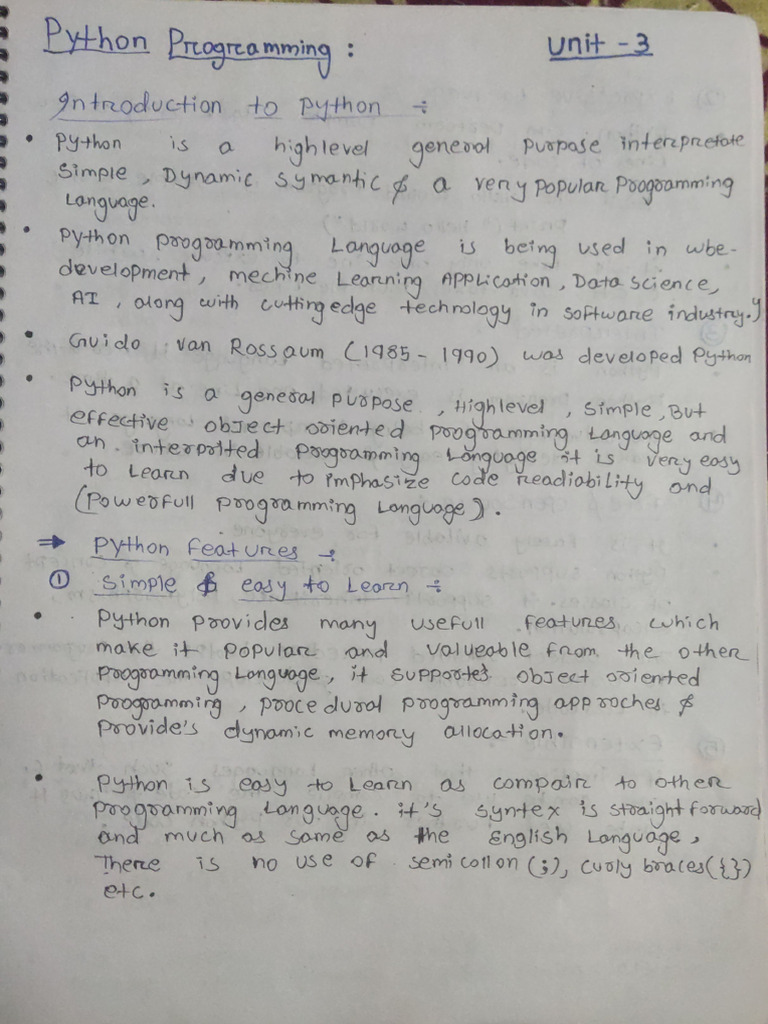 Python Programming : Unit - 3
Introduction to Python :-
• Python is a highlevel general purpose interpretate
Simple, Dynamic Symantic & a very popular Programming
Language.
• Python programming Language is being used in wbe-
development, mechine Learning Application, Data science,
AI, along with cutting edge technology in software industry.
• Guido van Rossaum (1985 - 1990) was developed Python
• Python is a general purpose, Highlevel, Simple, But
effective object oriented programming Language and
an interprited programming Language it is very easy
to Learn due to imphasize code readiability and
(Powerfull programming Language).
⇒ Python features :-
① Simple & easy to Learn :-
• Python provides many usefull features which
make it popular and valueable from the other
programming Language, it supportes object oriented
programming, procedural programming approches &
provide's dynamic memory allocation.
• Python is easy to Learn as compair to other
programming Language. it's syntex is straight forward
and much as same as the English Language,
There is no use of semicollon (;), curly braces({})
etc.